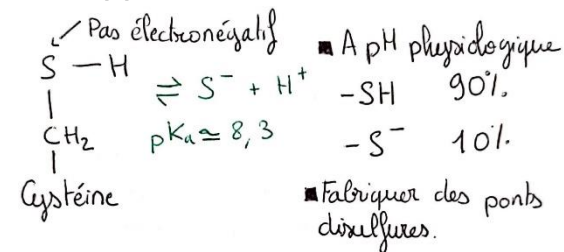 Pas électronégatif
S — H
⇌ S⁻ + H⁺
CH₂
pKa ≃ 8,3
Cystéine
■ A pH physiologique
-SH 90%
-S⁻ 10%
■ Fabriquer des ponts
disulfures.